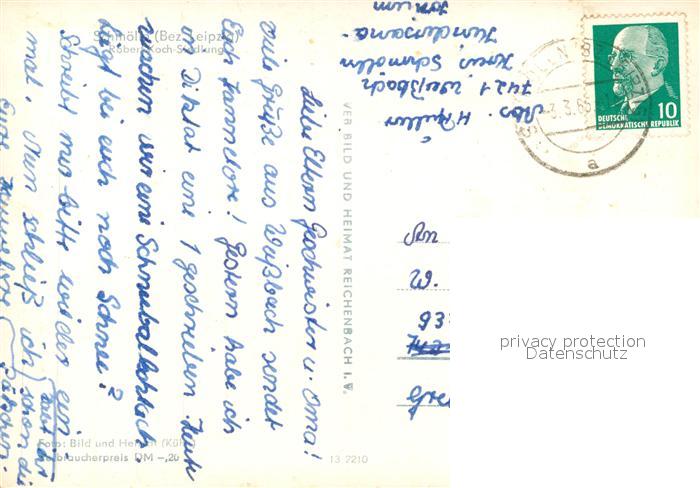 Schmölln (Bez. Leipzig)
Robert-Koch-Siedlung
Liebe Eltern Geschwister u. Oma!
Viele Grüße aus Weißbach sendet
Euch Hannelore! Gestern habe ich
im Diktat eine 1 geschrieben. Heute
machen wir eine Schneeballschlacht.
Liegt bei euch noch Schnee?
Schreibt mir bitte wieder ein
mal. Nun schließ ich
Eure Hannelore
Habt ihr
schon die
Foto: Bild und Heimat
Verbraucherpreis DM -,20
13 2210
VEB BILD UND HEIMAT REICHENBACH I. V.
Abs. H.
7421 Weißbach
Kreis Schmölln
3.3.66
a
DEUTSCHE
DEMOKRATISCHE REPUBLIK
10
An
W.
93
742
privacy protection
Datenschutz